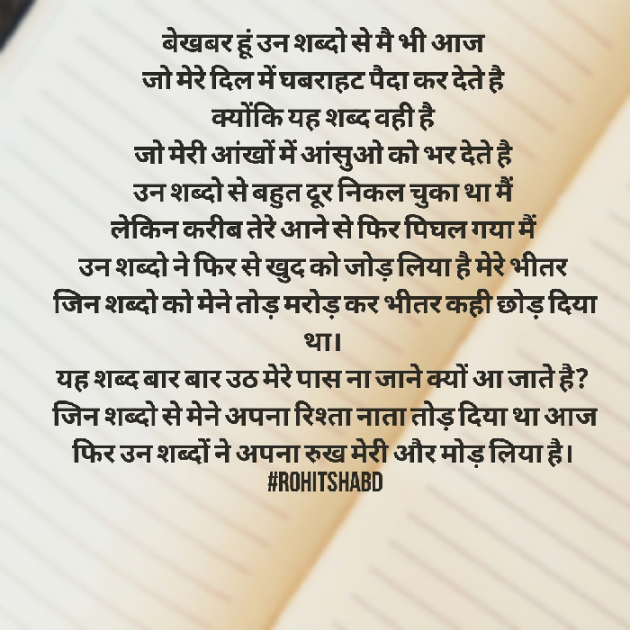 बेखबर हूं उन शब्दो से मै भी आज
जो मेरे दिल में घबराहट पैदा कर देते है
क्योंकि यह शब्द वही है
जो मेरी आंखों में आंसुओ को भर देते है
उन शब्दो से बहुत दूर निकल चुका था मैं
लेकिन करीब तेरे आने से फिर पिघल गया मैं
उन शब्दो ने फिर से खुद को जोड़ लिया है मेरे भीतर
जिन शब्दो को मेने तोड़ मरोड़ कर भीतर कही छोड़ दिया
था।
यह शब्द बार बार उठ मेरे पास ना जाने क्यों आ जाते है?
जिन शब्दो से मेने अपना रिश्ता नाता तोड़ दिया था आज
फिर उन शब्दों ने अपना रुख मेरी और मोड़ लिया है।
#ROHITSHABD